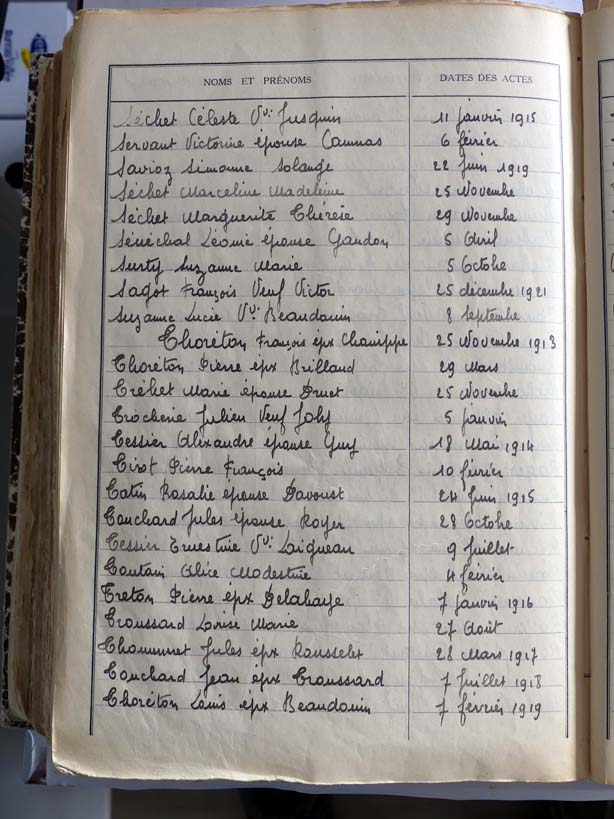 NOMS ET PRÉNOMS DATES DES ACTES
Séchet Céleste Vve Jusquin 11 janvier 1915
Servant Victorine épouse Camnas 6 février
Savioz Simonne Solange 22 Juin 1919
Séchet Marceline Madeleine 25 Novembre
Séchet Marguerite Thérèse 29 Novembre
Sénéchal Léonie épouse Gandon 5 Avril
Surty Suzanne Marie 5 Octobre
Sagot François Veuf Victor 25 décembre 1921
Suzanne Lucie Vve Beaudouin 8 Septembre
Thoréton François épx Champpe 25 Novembre 1913
Thoréton Pierre épx Brilland 29 Mars
Tréhet Marie épouse Druet 25 Novembre
Trocherie Julien Veuf Joly 5 janvier
Tessier Alexandre épouse Guy 18 Mai 1914
Tirot Pierre François 10 février
Tatin Rosalie épouse Davoust 24 Juin 1915
Touchard Jules épouse Royer 28 Octobre
Tessier Ernestine Vve Loigneau 9 Juillet
Toutain Alice Modestine 4 février
Treton Pierre épx Delahaye 7 janvier 1916
Troussard Louise Marie 27 Août
Thommeret Jules épx Rousselet 28 Mars 1917
Touchard Jean épx Troussard 7 Juillet 1918
Thoréton Louis épx Beaudouin 7 février 1919